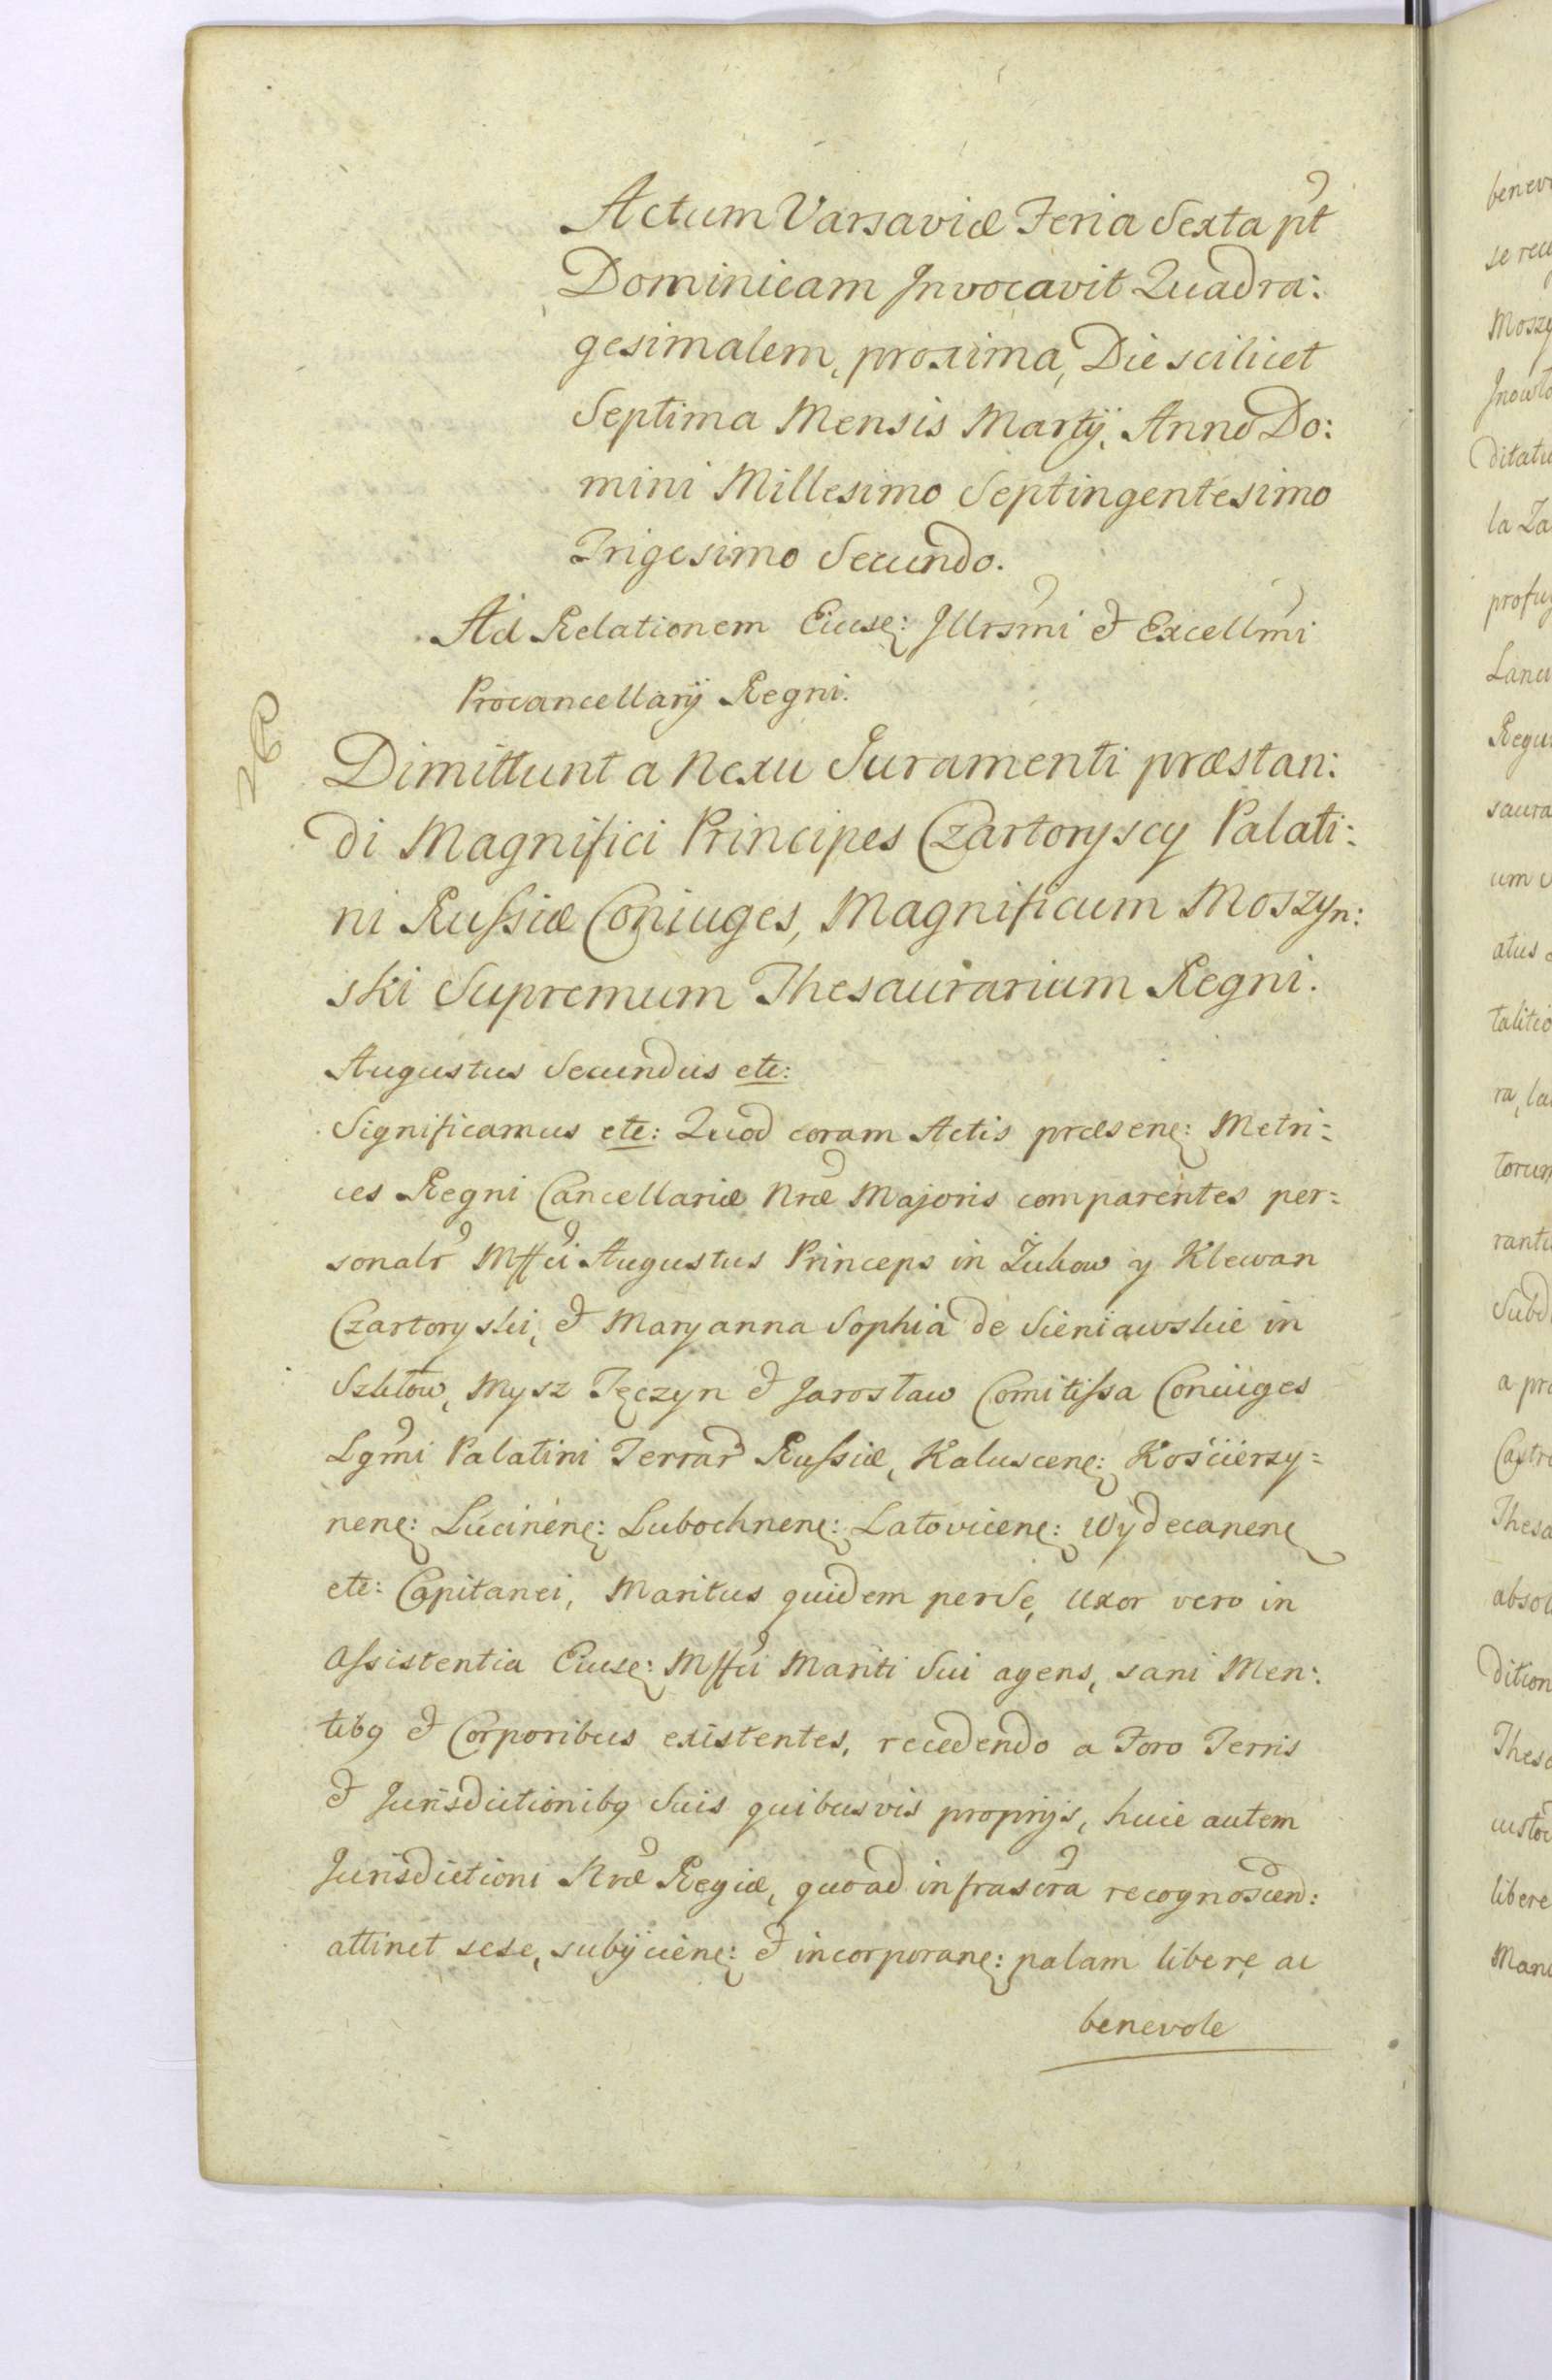 Actum Varsaviæ Feria Sexta pt
Dominicam Invocavit Quadra:
gesimalem, proxima, Die scilicet
Septima Mensis Martij, Anno Do:
mini Millesimo Septingentesimo
Trigesimo Secundo.
Ad Relationem Eiusę: Illrsmi & Excellmi
Procancellarij Regni.
Dimittunt a nexu Juramenti præstan:
di Magnifici Principes Czartoryscy Palati:
ni Russiæ Coniuges, Magnificum Moszyn:
ski Supremum Thesaurarium Regni.
Augustus Secundus etc:
Significamus etc: Quod coram Actis præsenę: Metri=
ces Regni Cancellariæ Nræ Majoris comparentes per=
sonalr Mffci Augustus Princeps in Żukow y Klewan
Czartoryski, & Maryanna Sophia de Sieniawskie in
Szkłow, Mysz Tęczyn & Jarosław Comitissa Coniuges
Lgmi Palatini Terrar Russiæ, Kaluscenę: Kościerzy=
nenę: Lucinenę: Lubochnenę: Latovicenę: Wydecanenę
etc: Capitanei, Maritus quidem per se, Uxor vero in
Assistentia Eiusę: Mffci Mariti Sui agens, sani Men:
tibq & Corporibus existentes, recedendo a Foro Terris
& Jurisdictionibq Suis quibusvis proprijs, huic autem
Jurisdictioni Nræ Regiæ, quoad infrascra recognoscend:
attinet sese, subijcienę: & incorporanę: palam libere ac
benevole